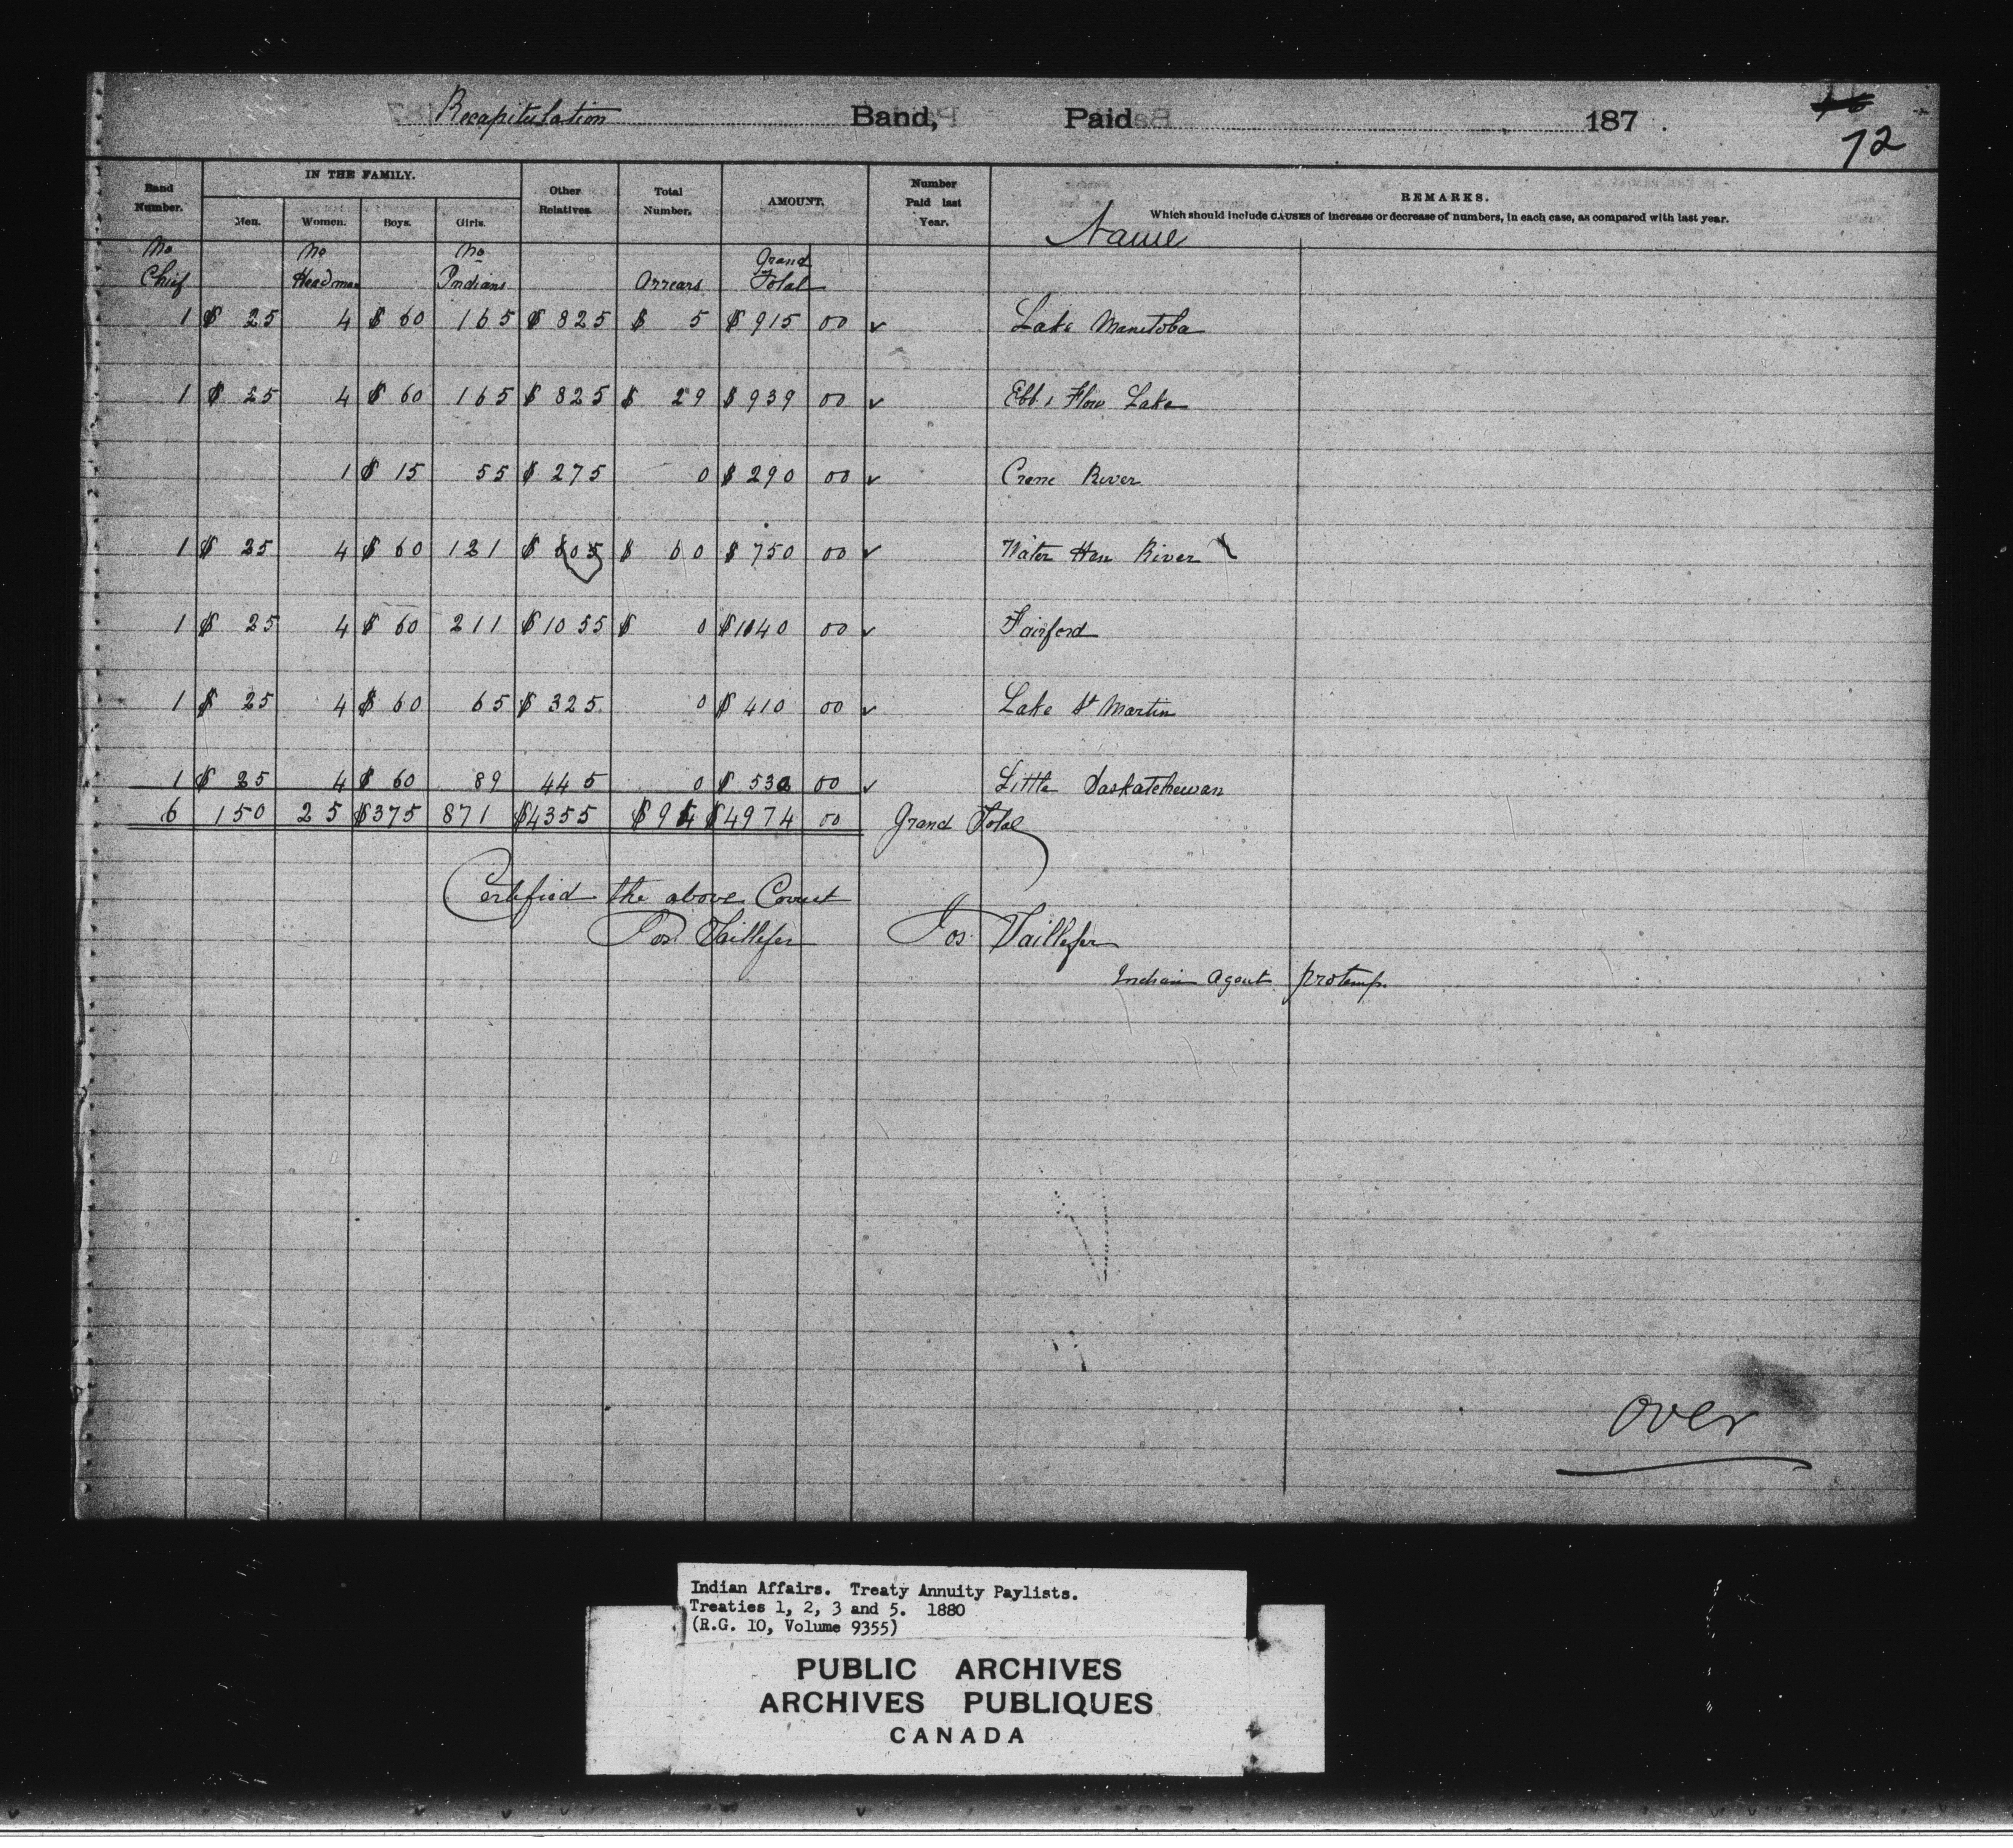 Recapitulation Band, Paid 187 .
72
Band Number. IN THE FAMILY. Men. Women. Boys. Girls. Other Relatives. Total Number. AMOUNT. Number Paid last Year. REMARKS.
Which should include CAUSES of increase or decrease of numbers, in each case, as compared with last year.
Name
No Chief No Headmen No Indians Arrears Grand Total
1 $ 25 4 $ 60 165 $ 825 $ 5 $ 915 00 ✓ Lake Manitoba
1 $ 25 4 $ 60 165 $ 825 $ 29 $ 939 00 ✓ Ebb & Flow Lake
1 $ 15 55 $ 275 0 $ 290 00 ✓ Crane River
1 $ 25 4 $ 60 121 $ 605 $ 60 $ 750 00 ✓ Water Hen River
1 $ 25 4 $ 60 211 $ 1055 $ 0 $ 1140 00 ✓ Fairford
1 $ 25 4 $ 60 65 $ 325 0 $ 410 00 ✓ Lake St Martin
1 $ 25 4 $ 60 89 445 0 $ 530 00 ✓ Little Saskatchewan
6 150 25 $375 871 $4355 $94 $4974 00 Grand Total
Certified the above Correct
Jos. Taillefer Jos Taillefer
Indian Agent protemp.
over
Indian Affairs. Treaty Annuity Paylists.
Treaties 1, 2, 3 and 5. 1880
(R.G. 10, Volume 9355)
PUBLIC ARCHIVES
ARCHIVES PUBLIQUES
CANADA